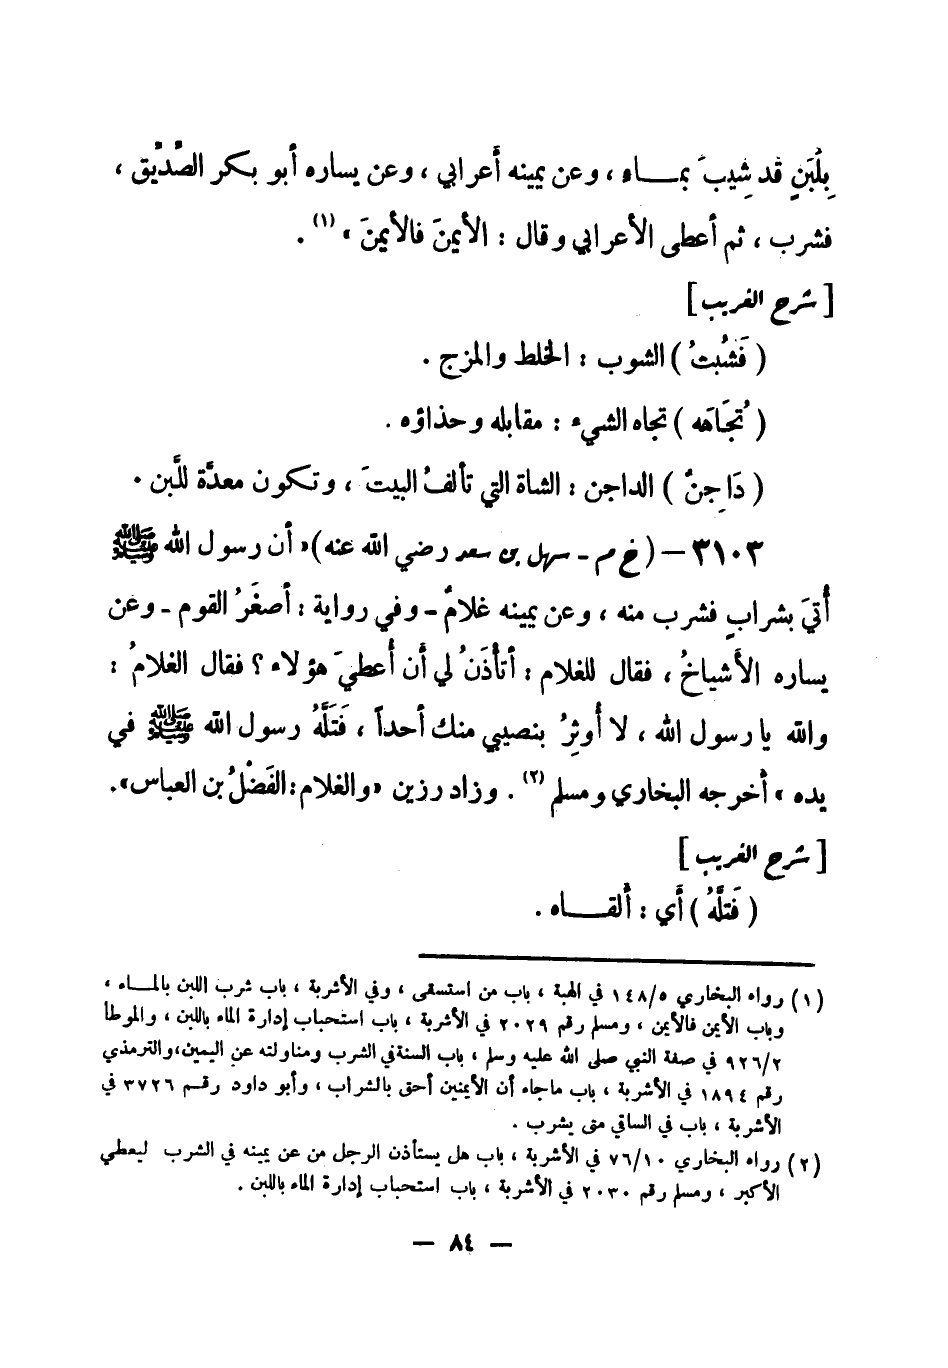 بِلَبَنٍ قد شِيبَ بمـــاء ، وعن يمينه أعرابي ، وعن يساره أبو بكر الصِّدِّيق ،
فشرب ، ثم أعطى الأعرابي وقال : الأيمنَ فالأيمنَ » (١) .
[ شرح الغريب ]
( فَشُبتُ ) الشوب : الخلط والمزج .
( تُجَاهَه ) تجاه الشيء : مقابله وحذاؤه .
( دَاجِنٌ ) الداجن : الشاة التي تألفُ البيتَ ، وتكون معدَّة للَّبن .
٣١٠٣ – ( خ م - سهل بن سعد رضي الله عنه ) « أن رسول الله ﷺ
أُتيَ بشرابٍ فشرب منه ، وعن يمينه غلامٌ - وفي رواية : أصغَرُ القوم - وعن
يساره الأَشياخُ ، فقال للغلام : أتأذَنُ لي أن أُعطيَ هؤلاء ؟ فقال الغلامُ :
والله يا رسول الله ، لا أُوثِرُ بنصيبي منك أحداً ، فَتَلَّهُ رسول الله ﷺ في
يده » أخرجه البخاري ومسلم (٢) . وزاد رزين « والغلام : الفَضْلُ بن العباس ».
[ شرح الغريب ]
( فَتلَّهُ ) أَي : ألقــــاه .
(١) رواه البخاري ١٤٨/٥ في الهبة ، باب من استسقى ، وفي الأشربة ، باب شرب اللبن بالمـــاء ،
وباب الأيمن فالأيمن ، ومسلم رقم ٢٠٢٩ في الأشربة ، باب استحباب إدارة الماء باللبن ، والموطأ
٩٢٦/٢ في صفة النبي صلى الله عليه وسلم ، باب السنة في الشرب ومناولته عن اليمين ، والترمذي
رقم ١٨٩٤ في الأشربة ، باب ماجاء أن الأيمنين أحق بالشراب ، وأبو داود رقـم ٣٧٢٦ في
الأشربة ، باب في الساقي متى يشرب .
(٢) رواه البخاري ٧٦/١٠ في الأشربة ، باب هل يستأذن الرجل من عن يمينه في الشرب ليعطي
الأكبر ، ومسلم رقم ٢٠٣٠ في الأشربة ، باب استحباب إدارة الماء باللبن .
— ٨٤ —